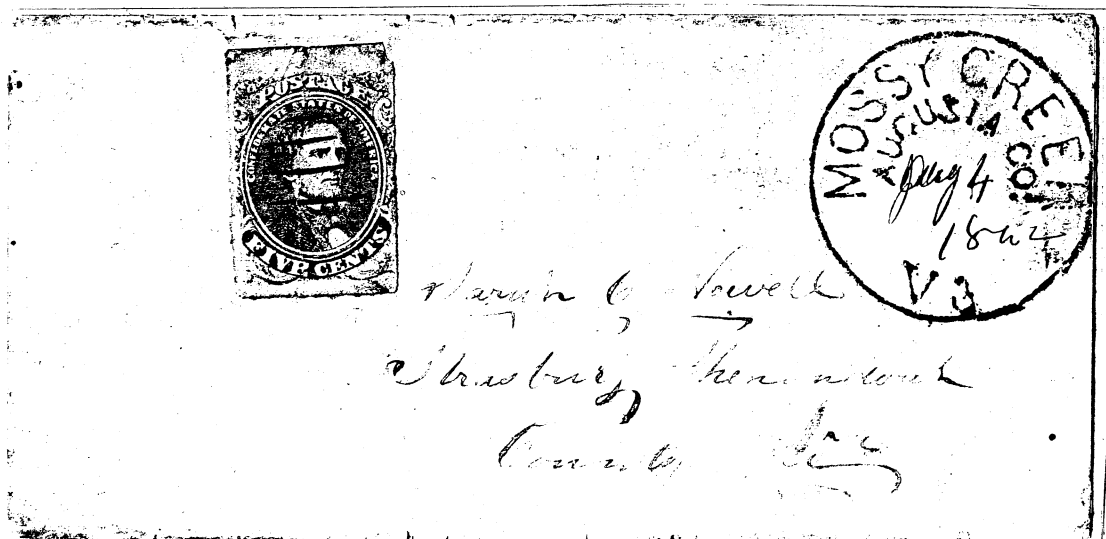 POSTAGE
CONFEDERATE STATES OF AMERICA
FIVE CENTS
MOSSY CREEK
AUGUSTA CO.
Aug 4
1862
Va
Powell
Strasburg, Shenandoah
County